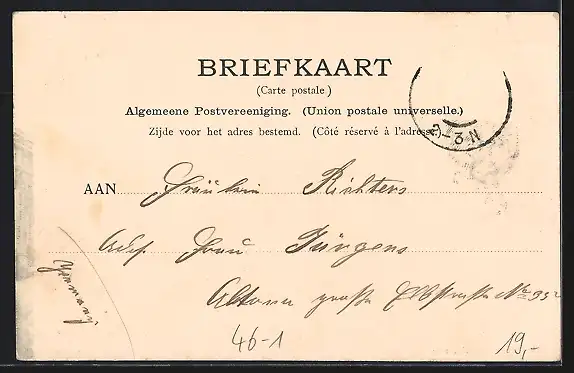 BRIEFKAART
(Carte postale)
Algemeene Postvereeniging. (Union postale universelle.)
Zijde voor het adres bestemd. (Côté réservé à l'adresse.)
2-3N
AAN Fräulein Richters
Adr. Frau Jürgens
Altona große Elbstraße No 95
Germany
46-1
19,-